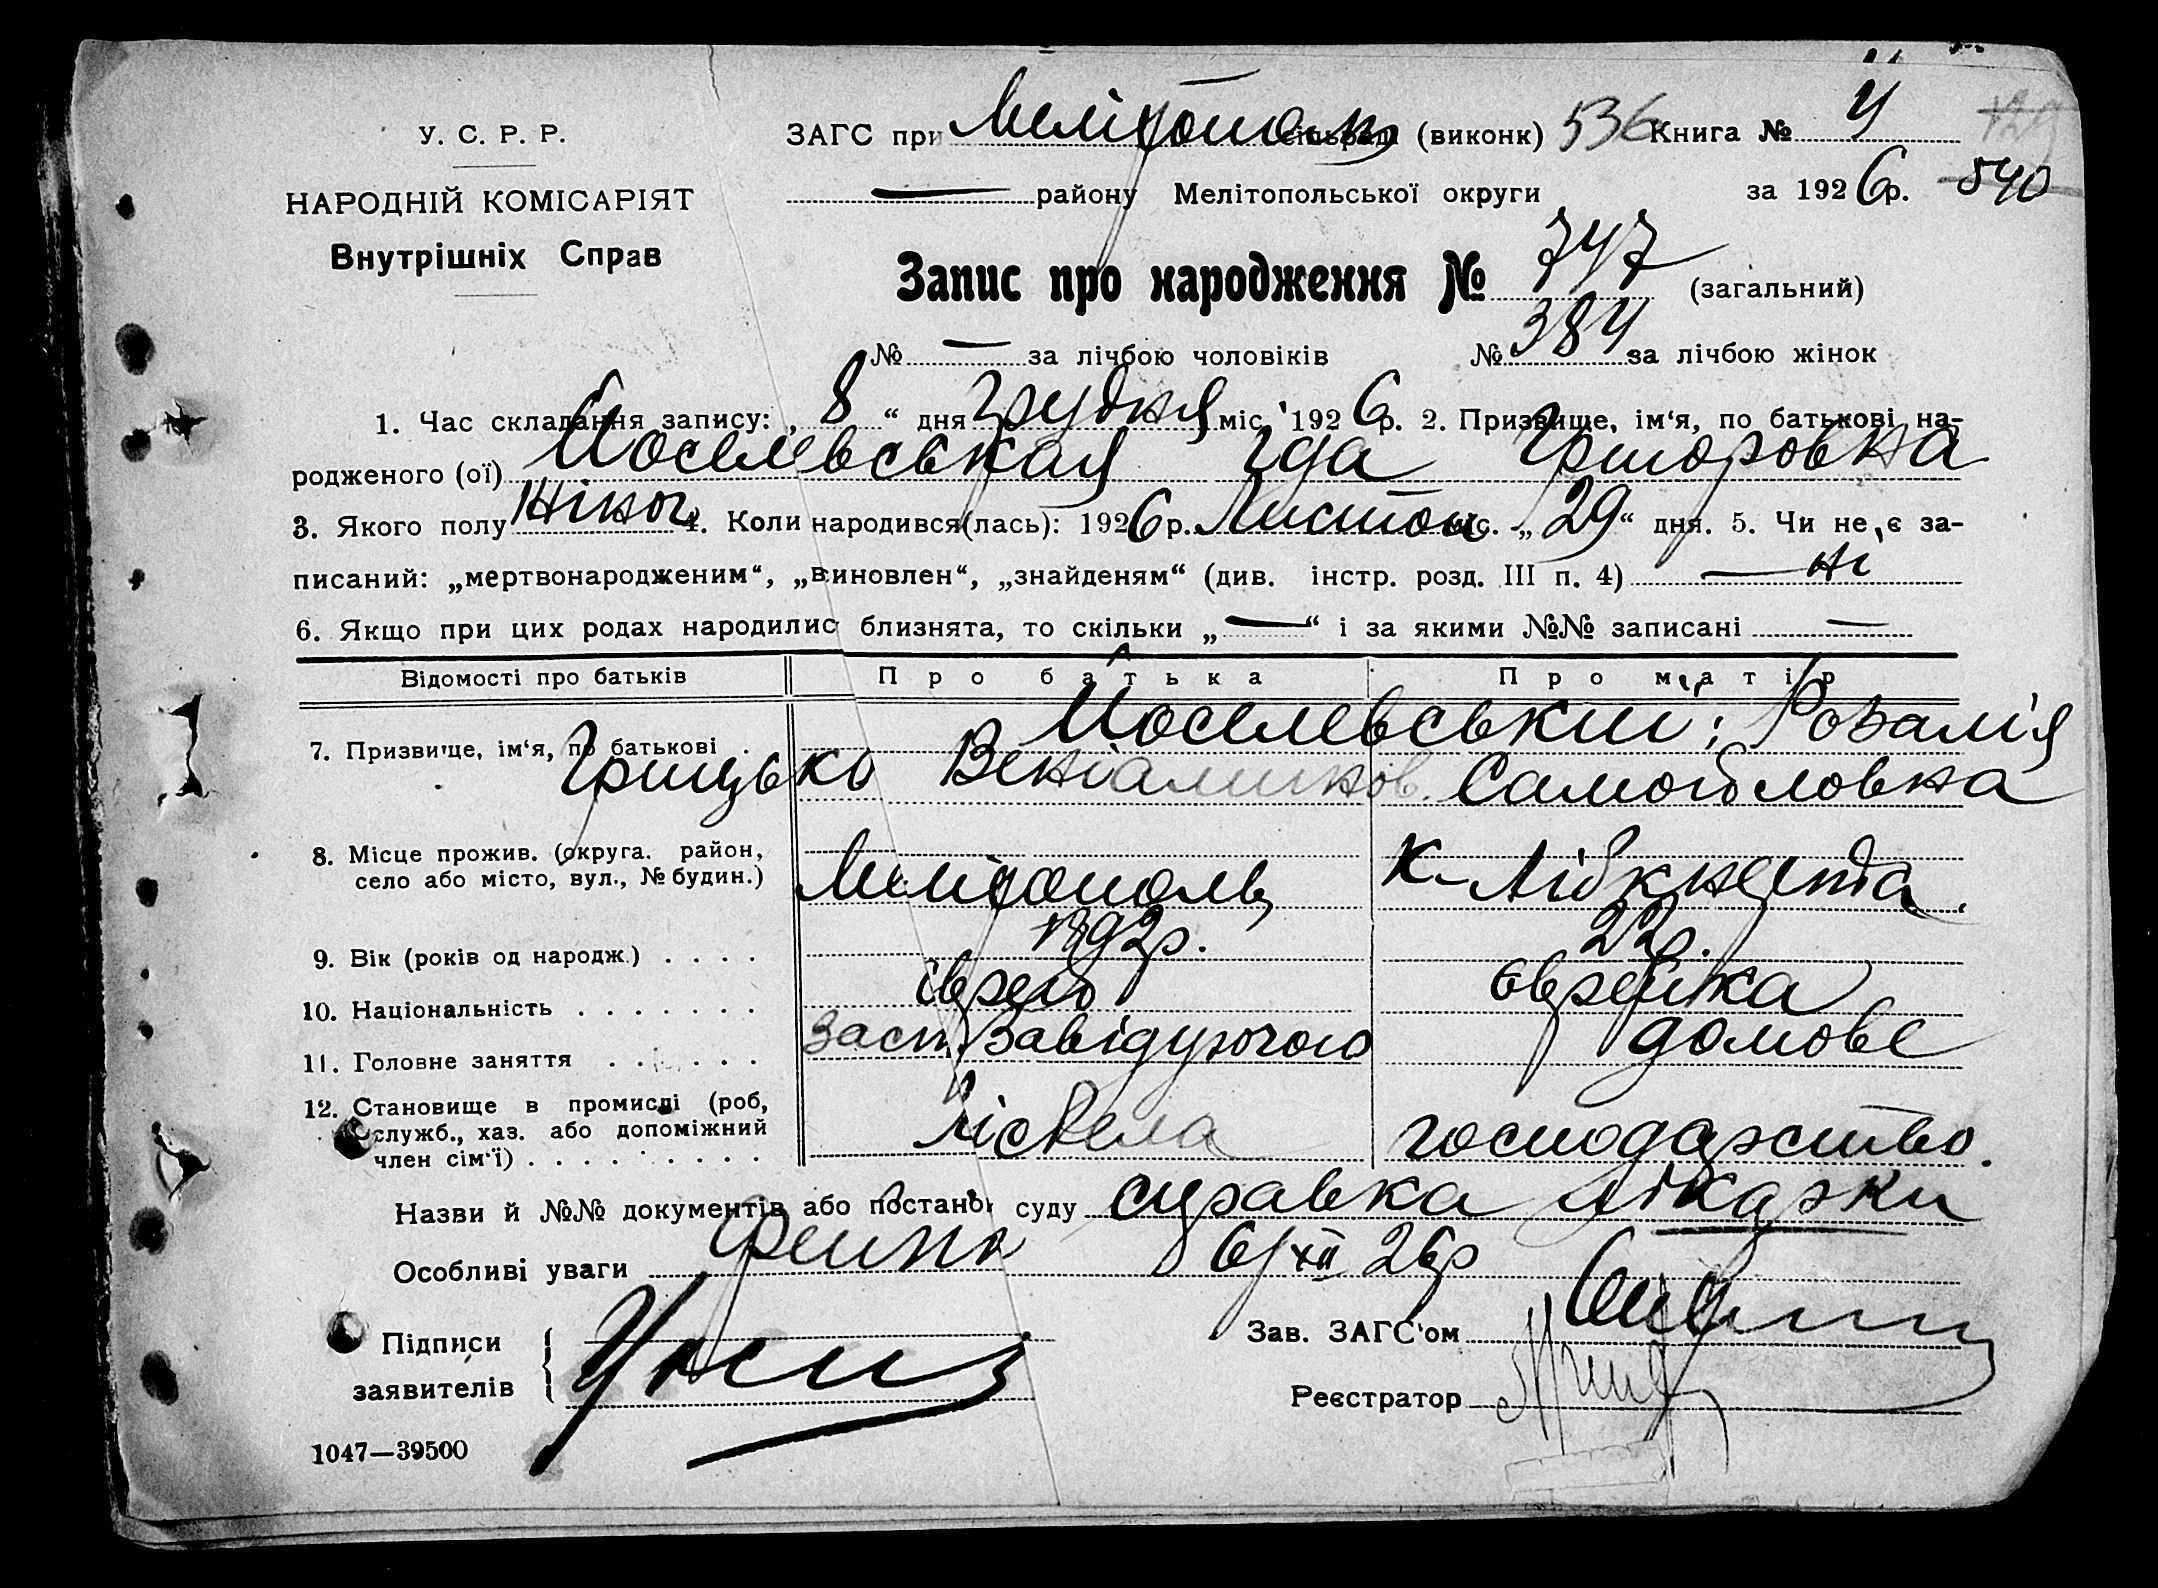 У. С. Р. Р.
НАРОДНІЙ КОМІСАРІЯТ
Внутрішніх Справ
ЗАГС при Мелітополь сільраді (виконк) 536 Книга № 4
— району Мелітопольської округи за 1926 р. 540
Запис про народження № 747 (загальний)
№ — за лічбою чоловіків № 384 за лічбою жінок
1. Час складання запису: „ 8 “ дня Грудня міс. 1926 р. 2. Призвище, ім‘я, по батькові на-
родженого (ої) Йоселевськая Іда Григоровна
3. Якого полу жіноч 4. Коли народився(лась): 1926 р. Листоп міс. „ 29 “ дня. 5. Чи не є за-
писаний: „мертвонародженим“, „виновлен“, „знайденям“ (див. інстр. розд. III п. 4) — ні
6. Якщо при цих родах народилис близнята, то скільки „ — “ і за якими №№ записані —
Відомості про батьків Про батька Про матір
7. Призвище, ім‘я, по батькові . Йоселевський; Розалія
Грицько Веніамінов. Самойловна
8. Місце прожив. (округа. район,
село або місто, вул., № будин.) Мелітополь К. Лібкнехта
9. Вік (років од народж.) . . . . 1892р. 22р.
10. Національність . . . . . . . єврей єврейка
11. Головне заняття . . . . . . Заст. Завідуючого домове
12. Становище в промислі (роб,
служб., хаз. або допоміжний
член сім‘ї) . . . . . . . . . . господарство.
Назви й №№ документів або постанов суду справка лікарки
Особливі уваги 6/XII 26р
Підписи
заявителів
Зав. ЗАГС‘ом
Реєстратор
1047—39500